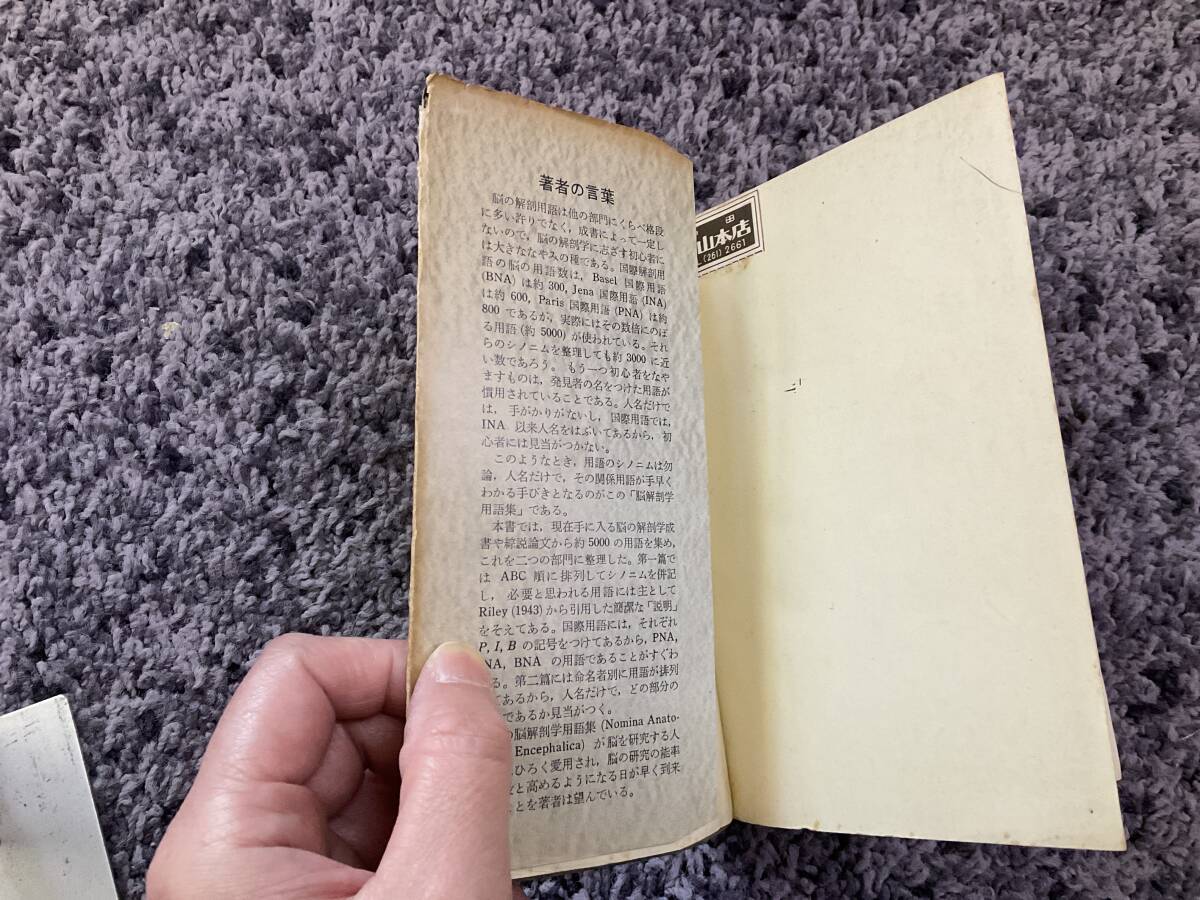 著者の言葉
脳の解剖用語は他の部門にくらべ格段
に多い許りでなく，成書によって一定し
ないので，脳の解剖学に志ざす初心者に
は大きななやみの種である。国際解剖用
語の脳の用語数は，Basel 国際用語
(BNA) は約 300, Jena 国際用語 (INA)
は約 600, Paris 国際用語 (PNA) は約
800 であるが，実際にはその数倍にのぼ
る用語 (約 5000) が使われている。それ
らのシノニムを整理しても約 3000 に近
い数であろう。もう一つ初心者をなや
ますものは，発見者の名をつけた用語が
慣用されていることである。人名だけで
は，手がかりがないし，国際用語では，
INA 以来人名をはぶいてあるから，初
心者には見当がつかない。
このようなとき，用語のシノニムは勿
論，人名だけで，その関係用語が手早く
わかる手びきとなるのがこの「脳解剖学
用語集」である。
本書では，現在手に入る脳の解剖学成
書や綜説論文から約 5000 の用語を集め，
これを二つの部門に整理した。第一篇で
は ABC 順に排列してシノニムを併記
し，必要と思われる用語には主として
Riley (1943) から引用した簡潔な「説明」
をそえてある。国際用語には，それぞれ
P, I, B の記号をつけてあるから，PNA,
NA, BNA の用語であることがすぐわ
る。第二篇には命名者別に用語が排列
てあるから，人名だけで，どの部分の
であるか見当がつく。
脳解剖学用語集 (Nomina Anato-
Encephalica) が脳を研究する人
ひろく愛用され，脳の研究の能率
と高めるようになる日が早く到来
ことを著者は望んでいる。
田
山本店
(261) 2661